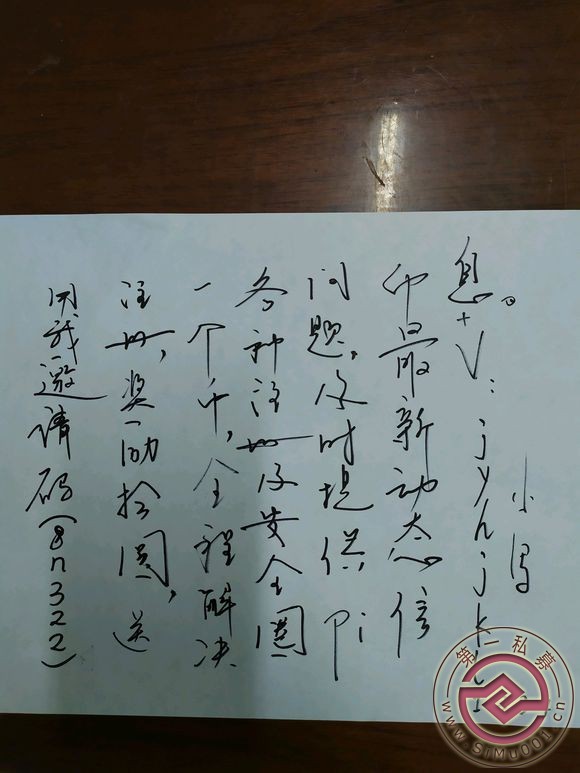 用我邀请码(8n322)
注册,奖励拾圆,送
一个币,全程解决
各种注册及安全圈
问题,及时提供Pi
币最新动态信
息。+V:jyhjk
小
第一私募
www.simu001.cn